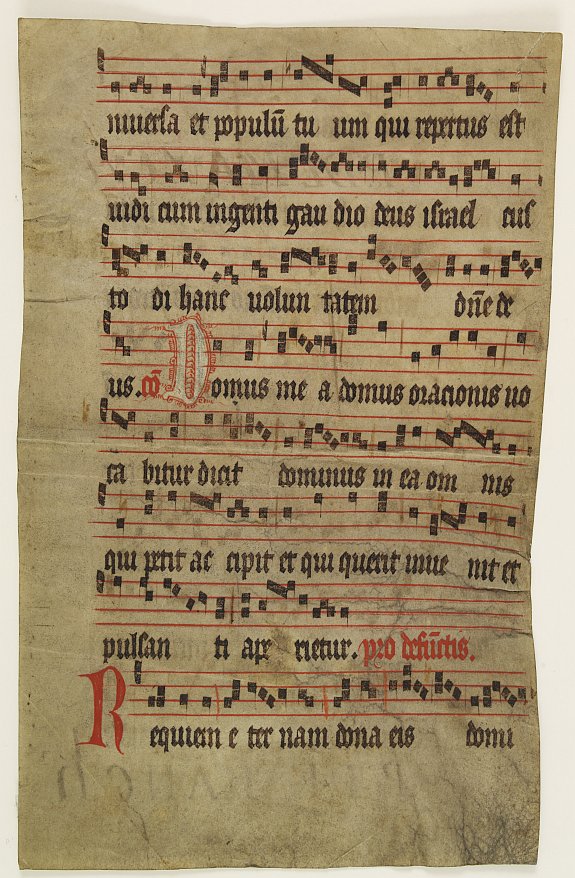 niuersa et populū tu um qui repertus est
uidi cum ingenti gau dio deus israel cus
to di hanc uolun tatem dn̄e de
us. cō Domus me a domus oracionis uo
ca bitur dicit dominus in ea om nis
qui petit ac cipit et qui querit inue nit et
pulsan ti ape rietur. pro defūctis.
Requiem e ter nam dona eis domi